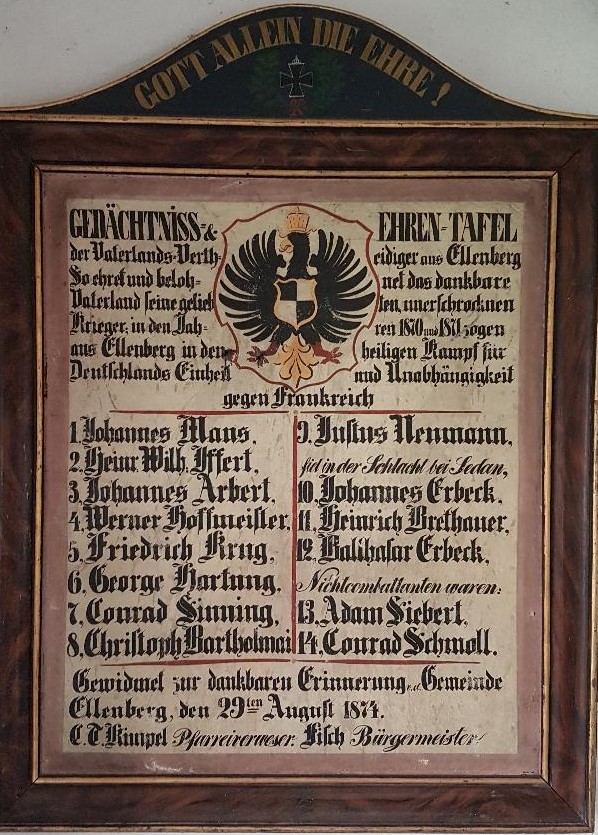 GOTT ALLEIN DIE EHRE!
GEDÄCHTNISS-& EHREN-TAFEL
der Vaterlands-Verth- eidiger aus Ellenberg
So ehret und beloh- net das dankbare
Vaterland seine gelieb ten, unerschrocknen
Krieger, in den Jah- ren 1870 und 1871 zogen
aus Ellenberg in den heiligen Kampf für
Deutschlands Einheit und Unabhängigkeit
gegen Frankreich
1, Johannes Maus,
2, Heinr. Wilh. Iffert,
3, Johannes Arbert,
4, Werner Hoffmeister,
5, Friedrich Krug,
6, George Hartung,
7, Conrad Sinning,
8, Christoph Bartholmai
9, Justus Neumann,
fiel in der Schlacht bei Sedan,
10, Johannes Erbeck,
11, Heinrich Brethauer,
12, Balthasar Erbeck,
Nichtcombattanten waren:
13, Adam Siebert,
14, Conrad Schmoll.
Gewidmet zur dankbaren Erinnerung v. d. Gemeinde
Ellenberg, den 29ten August 1874.
C. T. Kimpel Pfarreiverweser. Fisch Bürgermeister